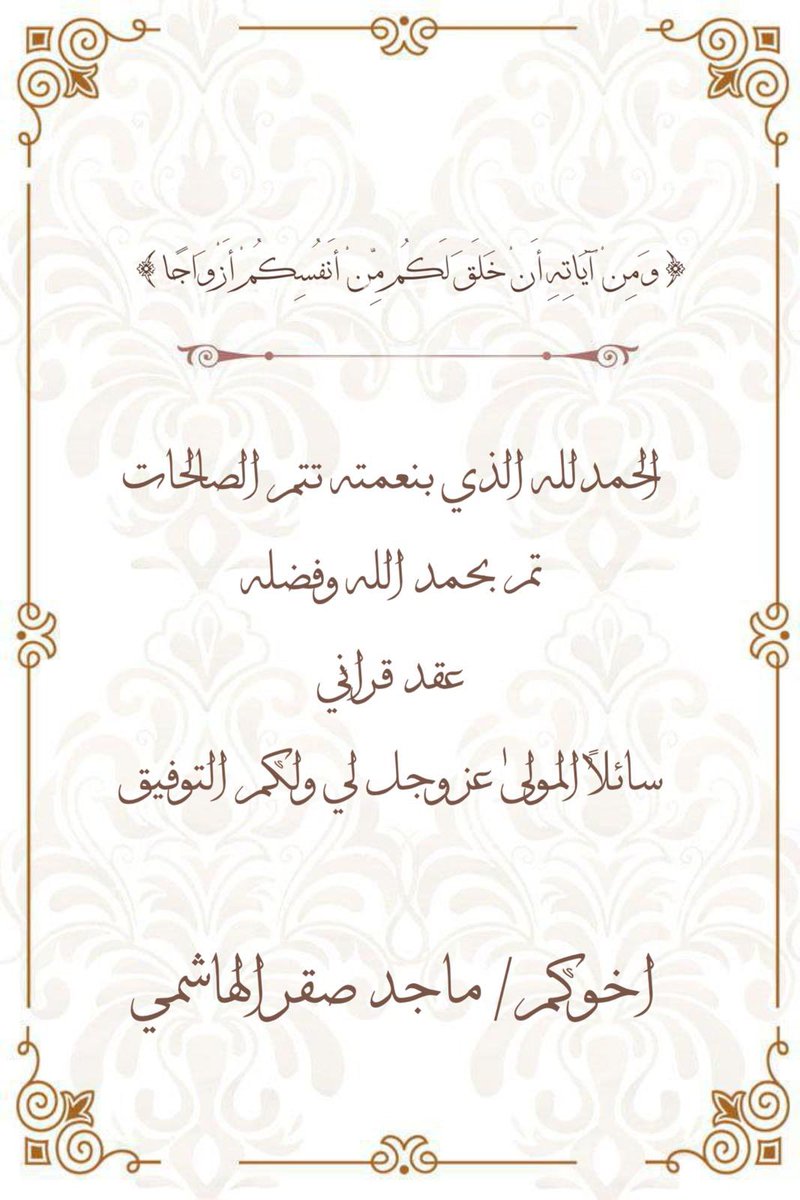 ﴿ وَمِنْ آيَاتِهِ أَنْ خَلَقَ لَكُم مِّنْ أَنفُسِكُمْ أَزْوَاجًا ﴾
الحمدلله الذي بنعمته تتم الصالحات
تم بحمد الله وفضله
عقد قراني
سائلاً المولىٰ عزوجل لي ولكم التوفيق
اخوكم/ ماجد صقر الهاشمي